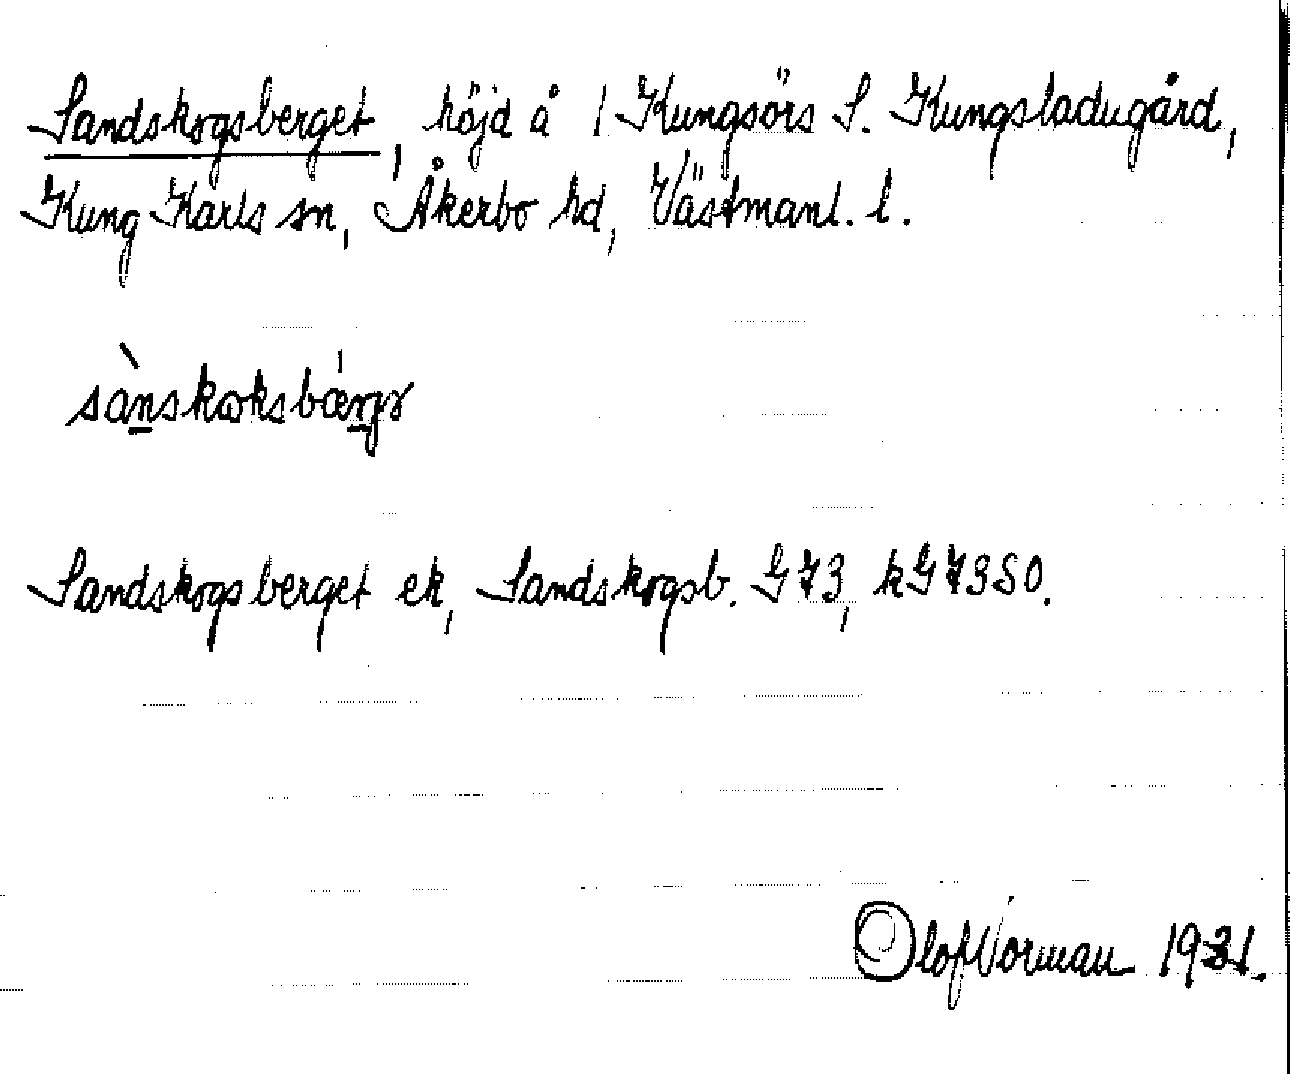 Sandskogsberget, höjd å 1 Kungsörs S. Kungsladugård,
Kung Karls sn, Åkerbo hd, Västmanl. l.
sànskoksbǽrjə
Sandskogsberget ek, Sandskogsb. G 73, kG 73SO.
Olof Norman 1931.